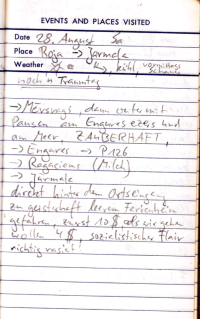 EVENTS AND PLACES VISITED
Date 28. August Sa
Place Roja → Jūrmala
Weather kühl, vormittags
noch n Traumtag
→ Mērsrags, dann weiter mit
Pausen am Engures ezers und
am Meer ZAUBERHAFT,
→ Engures → P. 126
→ Ragaciems (M.ch)
→ Jūrmala
direkt hinter dem Ortseingang
zu geisterhaft leerem Ferienheim
gefahren, zuerst 10 $ als wir gehen
wollen 4 $, sozialistischer Flair
richtig